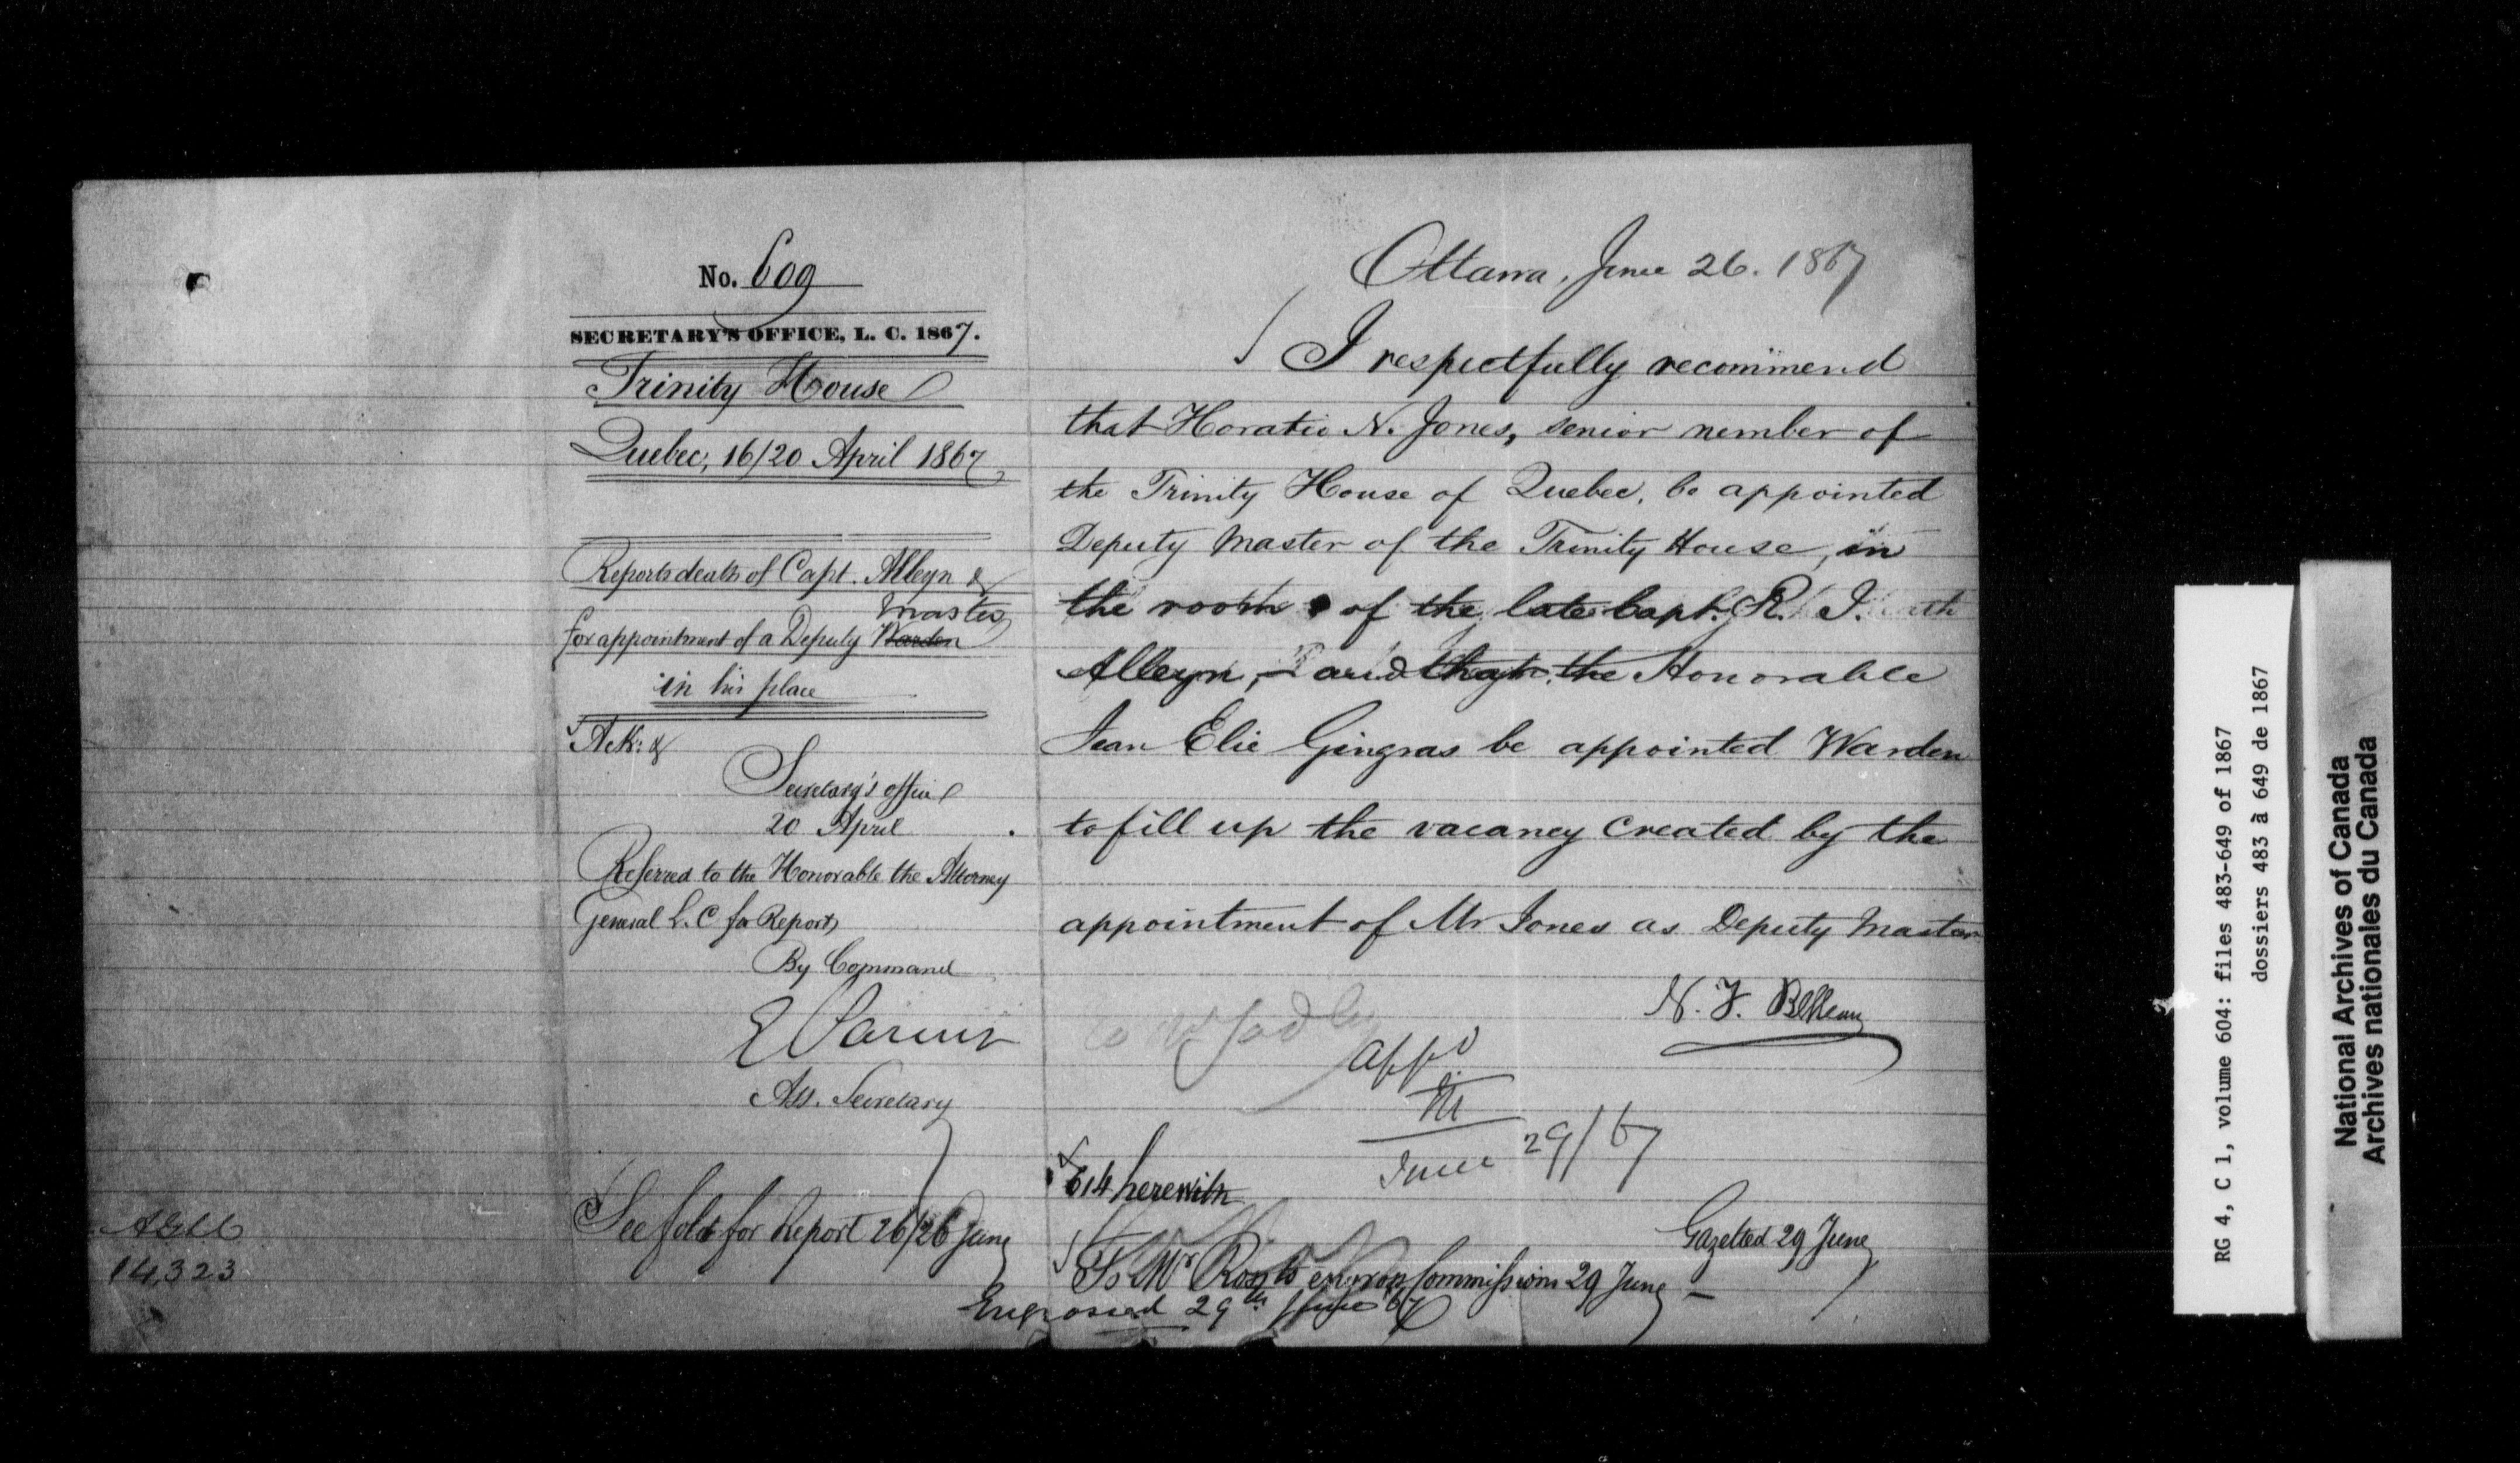 No. 609
SECRETARY'S OFFICE, L. C. 1867.
Trinity House
Quebec, 16/20 April 1867
Reports death of Capt. Alleyn &
Master
for appointment of a Deputy Warden
in his place
Ack: &
Secretary's office
20 April
Referred to the Honorable the Attorney
General L. C for Report
By Command
E Parent
Ass. Secretary
See fold for Report 26/26 June
14,323
Ottawa, June 26. 1867
I respectfully recommend
that Horatio N. Jones, senior member of
the Trinity House of Quebec, be appointed
Deputy Master of the Trinity House, in
the room of the late Capt. R. I.
Alleyn, and that the Honorable
Jean Elie Gingras be appointed Warden
to fill up the vacancy created by the
appointment of Mr Jones as Deputy Master
N. F. Belleau
appd
M
June 29/67
614 herewith
Gazetted 29 June
To Mr Ross to engross Commission 29 June
Engrossed 29th June 67
RG 4, C 1, volume 604: files 483-649 of 1867
dossiers 483 à 649 de 1867
National Archives of Canada
Archives nationales du Canada